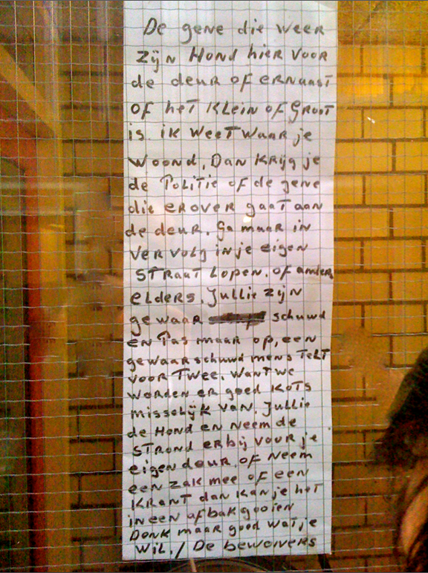 De gene die weer
zijn Hond hier voor
de deur of ernaast
of het Klein of Groot
is ik weet waar je
woond. Dan Krijg je
de Politie of de gene
die erover gaat aan
de deur. Ga maar in
vervolg in je eigen
straat lopen. of ander
elders. Jullie zijn
gewaar schuwd
en Pas maar op, een
gewaarschuwd mens telt
voor Twee. want we
worden er goed Kots
misselijk van. Jullie
de Hond en neem de
strond erbij voor je
eigen deur. of neem
een zak mee of een
Krant dan kan je het
in een afbak gooien
Denk maar goed wat je
wil. / De bewoners